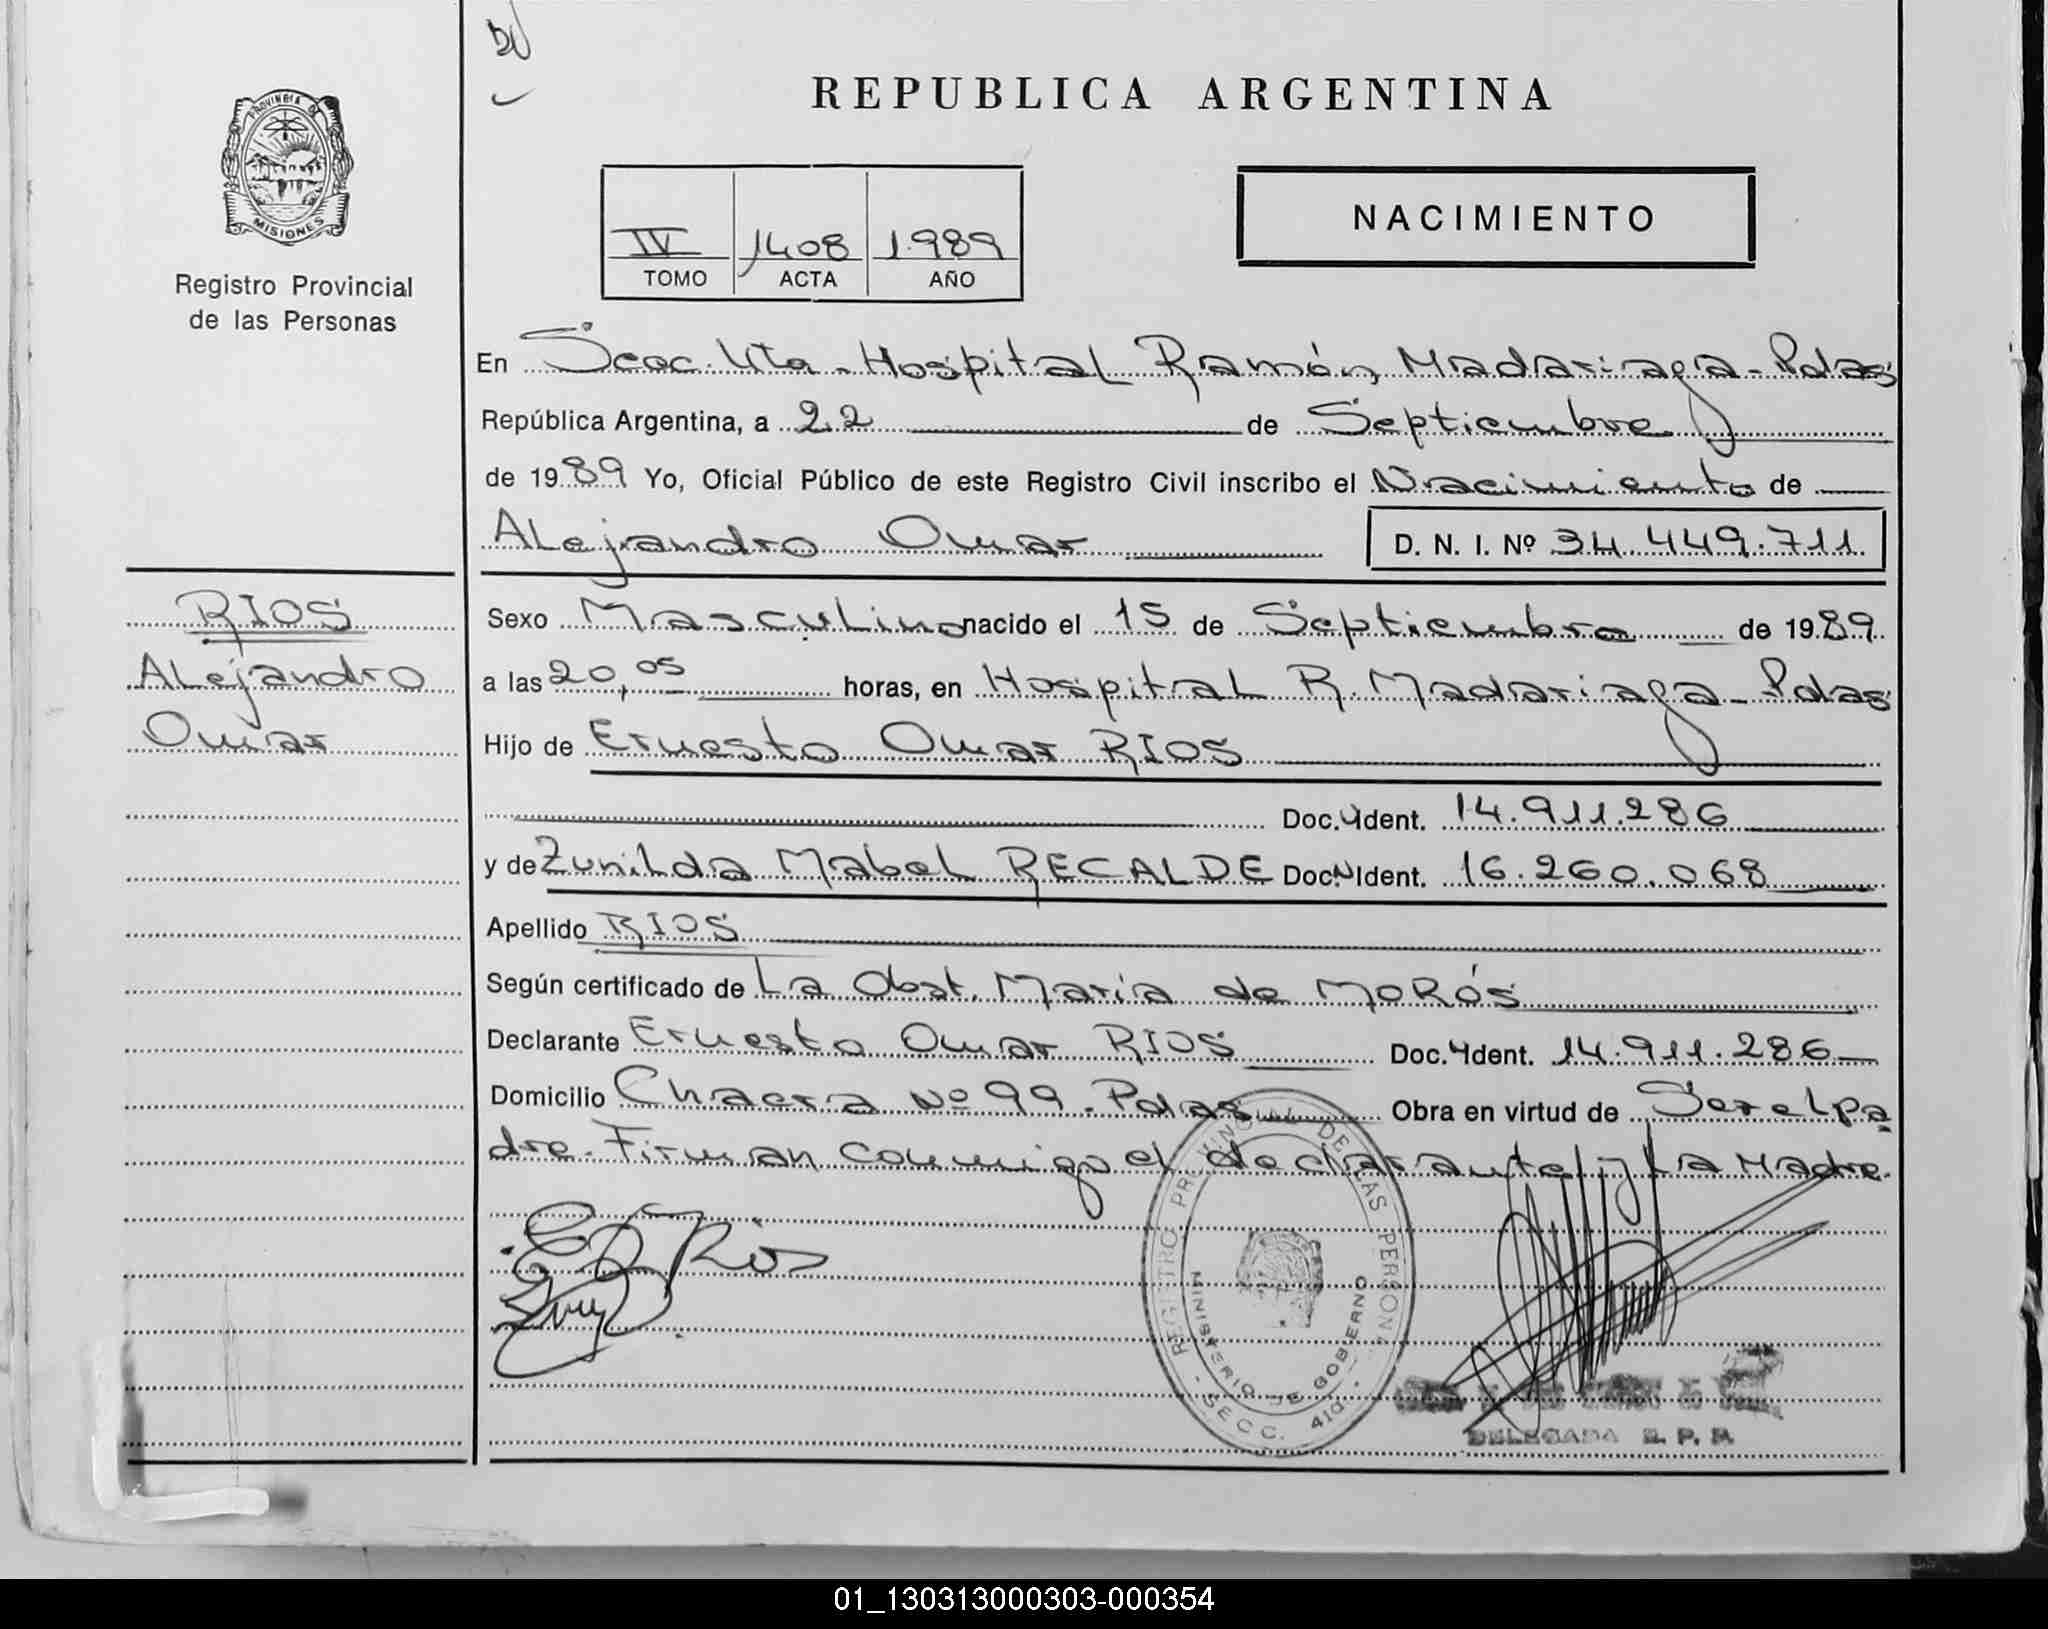 PROVINCIA DE
MISIONES
Registro Provincial
de las Personas
REPUBLICA ARGENTINA
NACIMIENTO
IV 1408 1989
TOMO ACTA AÑO
En Secc. 4ta - Hospital Ramón Madariaga - Pdas
República Argentina, a 22 de Septiembre
de 1989 Yo, Oficial Público de este Registro Civil inscribo el Nacimiento de
Alejandro Omar D. N. I. Nº 34.449.711
RIOS
Alejandro
Omar
Sexo Masculino nacido el 15 de Septiembre de 1989
a las 20,05 horas, en Hospital R. Madariaga - Pdas
Hijo de Ernesto Omar RIOS
Doc. Ident. 14.911.286
y de Zunilda Mabel RECALDE Doc. Ident. 16.260.068
Apellido RIOS
Según certificado de La Obst. María de MORÓS
Declarante Ernesto Omar RIOS Doc. Ident. 14.911.286
Domicilio Chacra Nº 99 - Pdas Obra en virtud de Ser el pa
dre. Firman conmigo el declarante y La Madre.
REGISTRO PROVINCIAL DE LAS PERSONAS
MINISTERIO DE GOBERNO
- SECC. 4ta -
DELEGADA R. P. P.
01_130313000303-000354